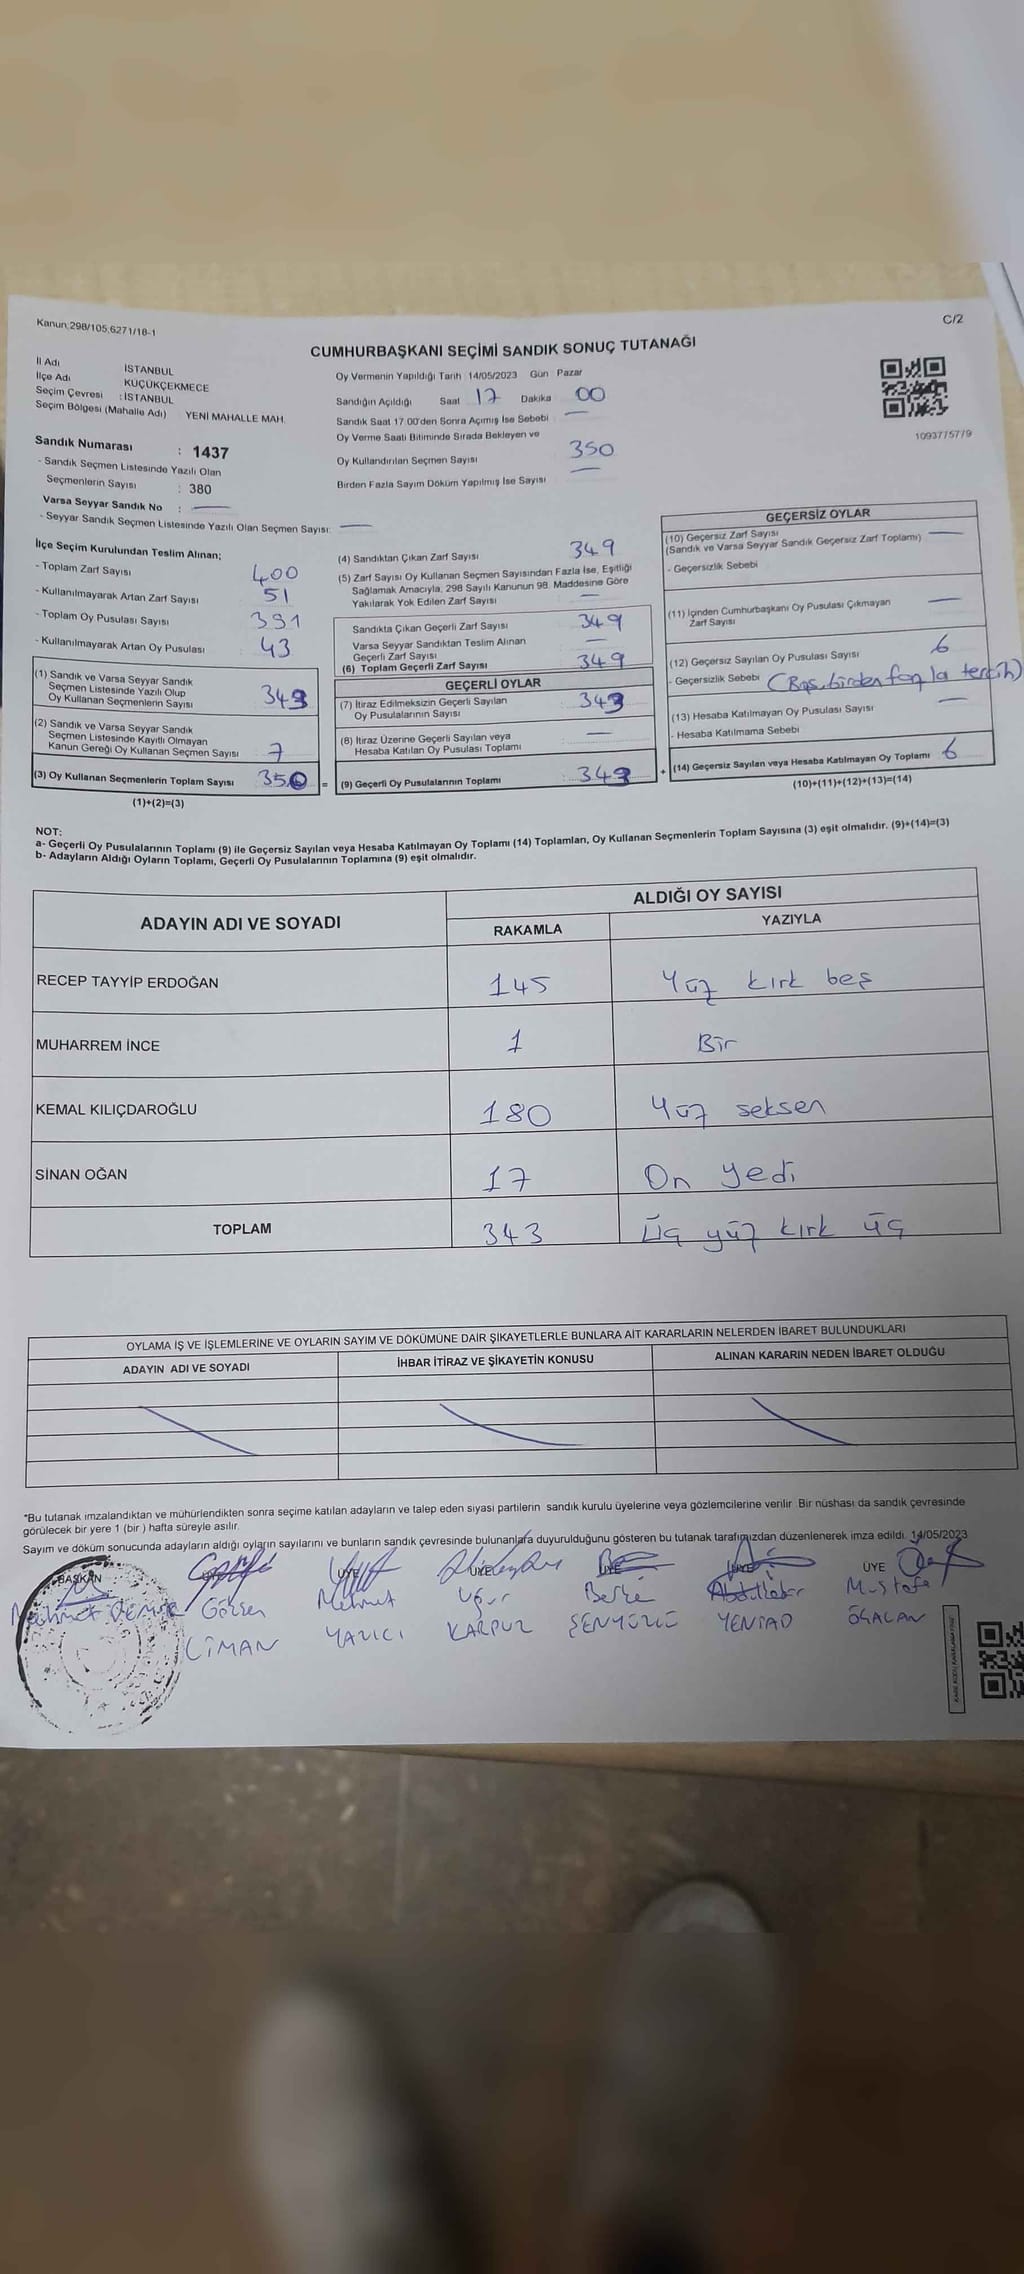 Kanun,298/105,6271/18-1
C/2
CUMHURBAŞKANI SEÇİMİ SANDIK SONUÇ TUTANAĞI
İl Adı İSTANBUL
İlçe Adı KÜÇÜKÇEKMECE
Seçim Çevresi : İSTANBUL
Seçim Bölgesi (Mahalle Adı) YENİ MAHALLE MAH.
Sandık Numarası : 1437
- Sandık Seçmen Listesinde Yazılı Olan
Seçmenlerin Sayısı : 380
Varsa Seyyar Sandık No : —
- Seyyar Sandık Seçmen Listesinde Yazılı Olan Seçmen Sayısı: —
Oy Vermenin Yapıldığı Tarih 14/05/2023 Gün Pazar
Sandığın Açıldığı Saat 17 Dakika 00
Sandık Saat 17.00'den Sonra Açımış İse Sebebi —
Oy Verme Saati Bitiminde Sırada Bekleyen ve
Oy Kullandırılan Seçmen Sayısı 350
Birden Fazla Sayım Döküm Yapılmış İse Sayısı —
1093775779
İlçe Seçim Kurulundan Teslim Alınan;
- Toplam Zarf Sayısı 400
- Kullanılmayarak Artan Zarf Sayısı 51
- Toplam Oy Pusulası Sayısı 391
- Kullanılmayarak Artan Oy Pusulası 43
(1) Sandık ve Varsa Seyyar Sandık
Seçmen Listesinde Yazılı Olup
Oy Kullanan Seçmenlerin Sayısı 343
(2) Sandık ve Varsa Seyyar Sandık
Seçmen Listesinde Kayıtlı Olmayan
Kanun Gereği Oy Kullanan Seçmen Sayısı 7
(3) Oy Kullanan Seçmenlerin Toplam Sayısı 350 =
(1)+(2)=(3)
(4) Sandıktan Çıkan Zarf Sayısı 349
(5) Zarf Sayısı Oy Kullanan Seçmen Sayısından Fazla İse, Eşitliği
Sağlamak Amacıyla, 298 Sayılı Kanunun 98. Maddesine Göre
Yakılarak Yok Edilen Zarf Sayısı —
Sandıkta Çıkan Geçerli Zarf Sayısı 349
Varsa Seyyar Sandıktan Teslim Alınan
Geçerli Zarf Sayısı —
(6) Toplam Geçerli Zarf Sayısı 349
GEÇERLİ OYLAR
(7) İtiraz Edilmeksizin Geçerli Sayılan
Oy Pusulalarının Sayısı : 343
(8) İtiraz Üzerine Geçerli Sayılan veya
Hesaba Katılan Oy Pusulası Toplamı : —
(9) Geçerli Oy Pusulalarının Toplamı : 343 +
GEÇERSİZ OYLAR
(10) Geçersiz Zarf Sayısı
(Sandık ve Varsa Seyyar Sandık Geçersiz Zarf Toplamı) —
- Geçersizlik Sebebi
(11) İçinden Cumhurbaşkanı Oy Pusulası Çıkmayan
Zarf Sayısı —
(12) Geçersiz Sayılan Oy Pusulası Sayısı 6
- Geçersizlik Sebebi (Baş. birden fazla tercih)
(13) Hesaba Katılmayan Oy Pusulası Sayısı —
- Hesaba Katılmama Sebebi
(14) Geçersiz Sayılan veya Hesaba Katılmayan Oy Toplamı 6
(10)+(11)+(12)+(13)=(14)
NOT:
a- Geçerli Oy Pusulalarının Toplamı (9) ile Geçersiz Sayılan veya Hesaba Katılmayan Oy Toplamı (14) Toplamları, Oy Kullanan Seçmenlerin Toplam Sayısına (3) eşit olmalıdır. (9)+(14)=(3)
b- Adayların Aldığı Oyların Toplamı, Geçerli Oy Pusulalarının Toplamına (9) eşit olmalıdır.
ADAYIN ADI VE SOYADI ALDIĞI OY SAYISI
RAKAMLA YAZIYLA
RECEP TAYYİP ERDOĞAN 145 Yüz kırk beş
MUHARREM İNCE 1 Bir
KEMAL KILIÇDAROĞLU 180 Yüz seksen
SİNAN OĞAN 17 On yedi
TOPLAM 343 Üç yüz kırk üç
OYLAMA İŞ VE İŞLEMLERİNE VE OYLARIN SAYIM VE DÖKÜMÜNE DAİR ŞİKAYETLERLE BUNLARA AİT KARARLARIN NELERDEN İBARET BULUNDUKLARI
ADAYIN ADI VE SOYADI İHBAR İTİRAZ VE ŞİKAYETİN KONUSU ALINAN KARARIN NEDEN İBARET OLDUĞU
*Bu tutanak imzalandıktan ve mühürlendikten sonra seçime katılan adayların ve talep eden siyasi partilerin sandık kurulu üyelerine veya gözlemcilerine verilir. Bir nüshası da sandık çevresinde
görülecek bir yere 1 (bir) hafta süreyle asılır.
Sayım ve döküm sonucunda adayların aldığı oyların sayılarını ve bunların sandık çevresinde bulunanlara duyurulduğunu gösteren bu tutanak tarafımızdan düzenlenerek imza edildi. 14/05/2023
BAŞKAN ÜYE ÜYE ÜYE ÜYE ÜYE
Mehmet DEMİR Göksen Mehmut Uğur Berke Mustafa
LİMAN YAZICI KARPUZ ŞENYÜZLÜ YENTAD ÖGALAN